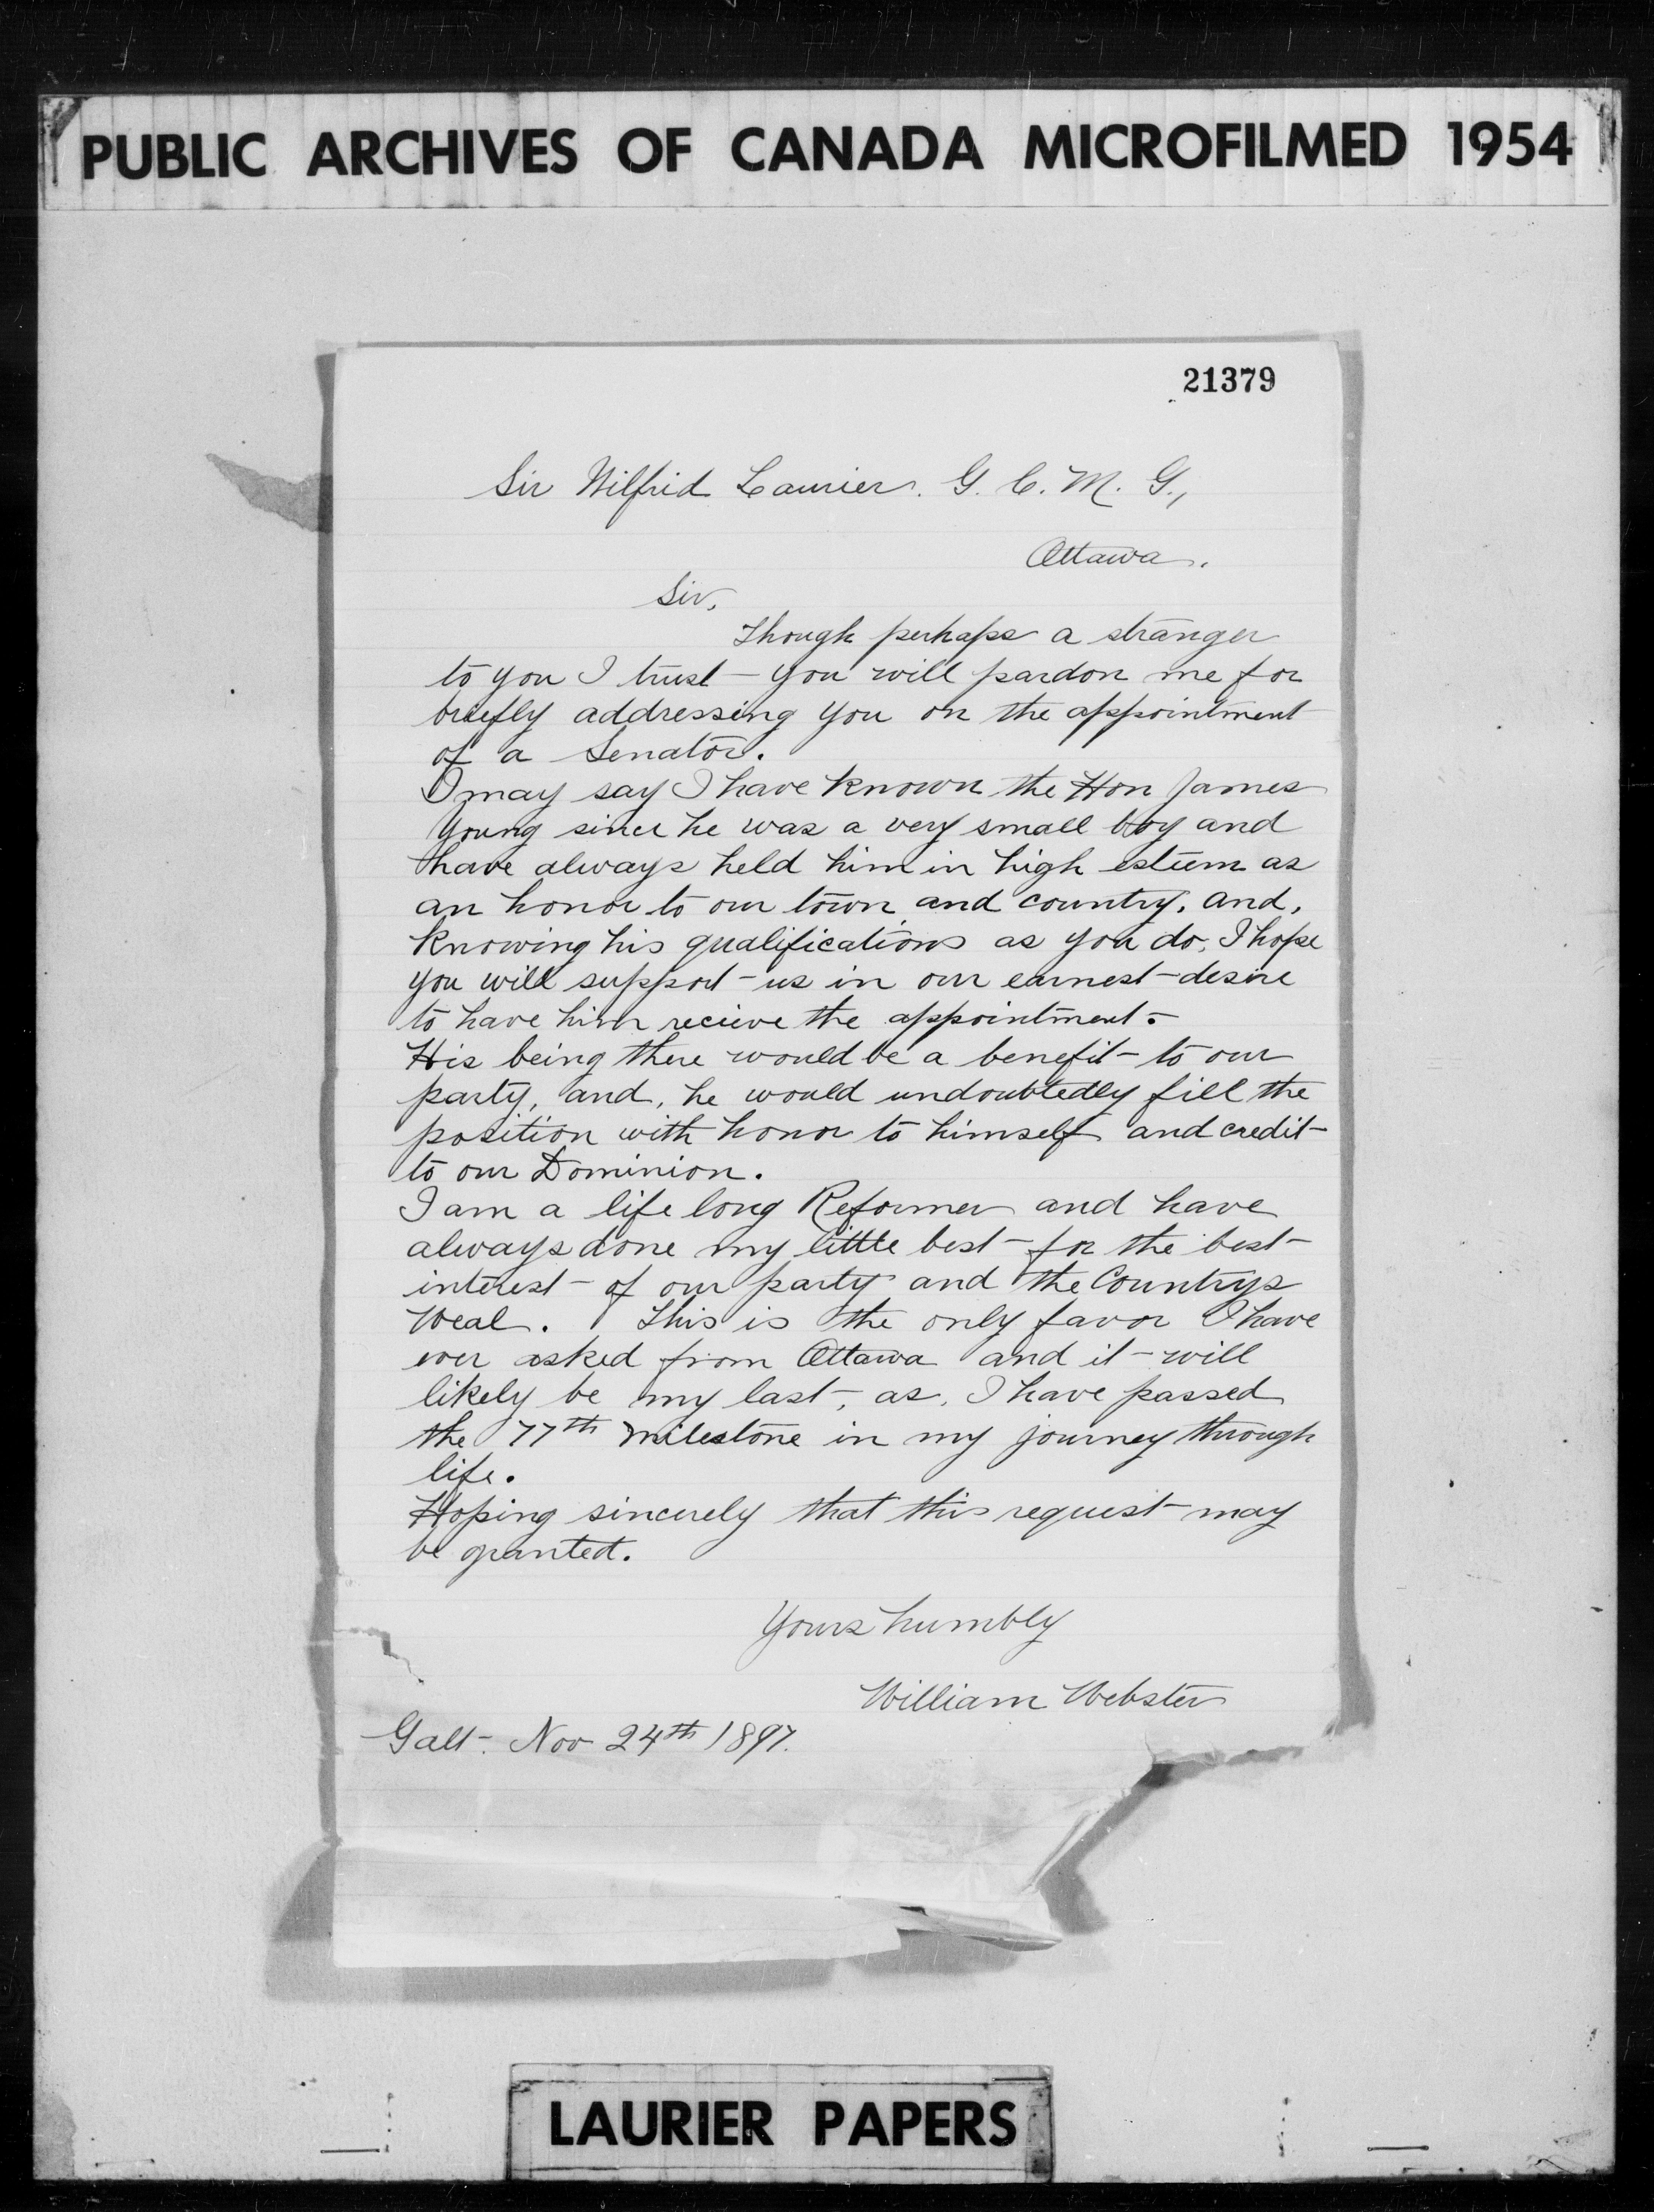 PUBLIC ARCHIVES OF CANADA MICROFILMED 1954
21379
Sir Wilfrid Laurier. G. C. M. G.,
Ottawa.
Sir,
Though perhaps a stranger
to you I trust you will pardon me for
briefly addressing you on the appointment
of a Senator.
I may say I have known the Hon James
Young since he was a very small boy and
have always held him in high esteem as
an honor to our town and country. and,
knowing his qualifications as you do, I hope
you will support us in our earnest desire
to have him recieve the appointment.
His being there would be a benefit to our
party, and, he would undoubtedly fill the
position with honor to himself and credit
to our Dominion.
I am a life long Reformer and have
always done my little best for the best
interest of our party and the Countrys
Weal. This is the only favor I have
ever asked from Ottawa and it will
likely be my last, as, I have passed
the 77th milestone in my journey through
life.
Hoping sincerely that this request may
be granted.
Yours humbly
William Webster
Galt. Nov 24th 1897.
LAURIER PAPERS